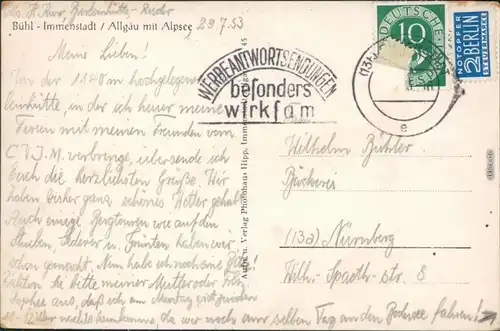 Bühl - Immenstadt / Allgäu mit Alpsee
29.7.53
Meine Lieben!
In der 1140 m hochgelegenen
in der ich heuer meine
Ferien mit meinen Freunden vom
C.V.J.M. verbringe, übersende ich
Euch die herzlichsten Grüße. Wir
haben bisher ganz schönes Wetter gehabt
Auch einige Bergtouren wie auf den
Stuiben, Steineberg u. Grünten haben wir
schon gemacht. Nun habe ich noch eine
bitte meiner Mutter oder
daß ich am Montag erst zwischen
10-12 Uhr nachts heimkomme da wir noch am selben Tag an den Bodensee fahren.
Aufn. u. Verlag Photohaus Hipp, Immenstadt
WERBEANTWORTSENDUNGEN
besonders
wirksam
DEUTSCHE
10
NOTOPFER
2 BERLIN
STEUERMARKE
(13
e
Wilhelm Bühler
Bäckerei
(13a) Nürnberg
Wilh.-Spaeth-str. 8